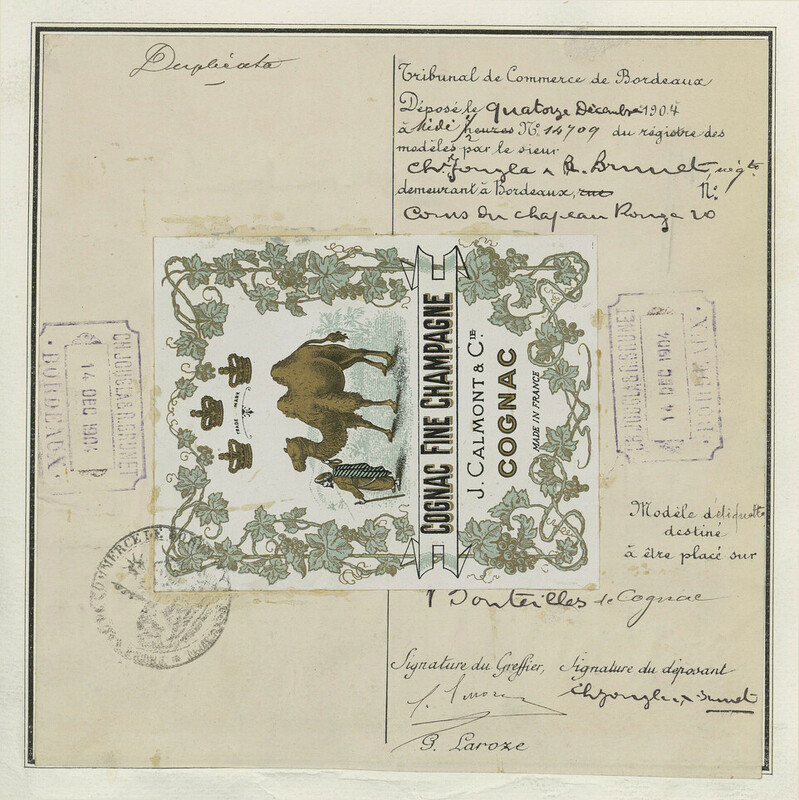 Duplicata
Tribunal de Commerce de Bordeaux
Déposé le quatorze Décembre 1904
à Midi 1/2 heures No. 14709 du régistre des
modèles par le sieur
Ch. Jougla & R. Brunet, négts
demeurant à Bordeaux, rue No.
Cours du Chapeau Rouge 20
TRADE MARK
COGNAC FINE CHAMPAGNE
J. CALMONT & CIE.
COGNAC
MADE IN FRANCE
CH. JOUGLA & R. BRUNET
14 DEC 1904
BORDEAUX
CH. JOUGLA & R. BRUNET
14 DEC 1904
BORDEAUX
COMMERCE DE
Modèle d'étiquette
destiné
à être placé sur
Bouteilles de Cognac
Signature du Greffier, Signature du déposant
Ch Jougla & Brunet
G. Laroze